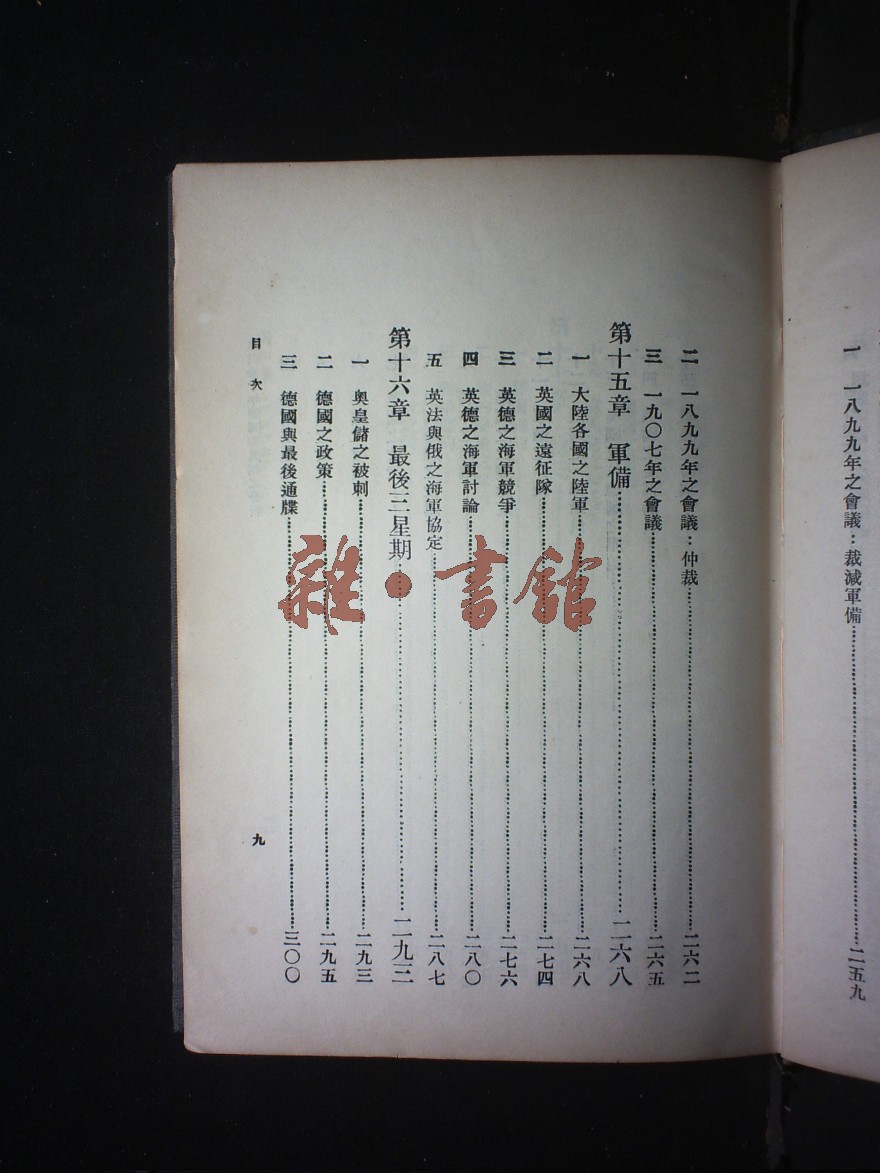 一 一八九九年之會議：裁減軍備…………二五九
二 一八九九年之會議：仲裁…………二六二
三 一九〇七年之會議…………二六五
第十五章 軍備…………二六八
一 大陸各國之陸軍…………二六八
二 英國之遠征隊…………二七四
三 英德之海軍競爭…………二七六
四 英德之海軍討論…………二八〇
五 英法與俄之海軍協定…………二八七
第十六章 最後三星期…………二九三
一 奧皇儲之被刺…………二九三
二 德國之政策…………二九五
三 德國與最後通牒…………三〇〇
目次
九
雜·書館